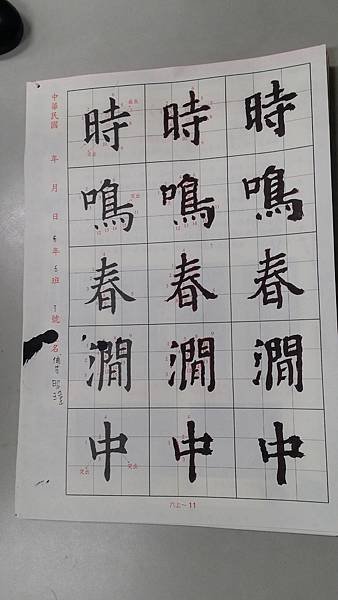 時 時 時
鳴 鳴 鳴
春 春 春
澗 澗 澗
中 中 中
中華民國 年 月 日 年 班 號 名
六上～11